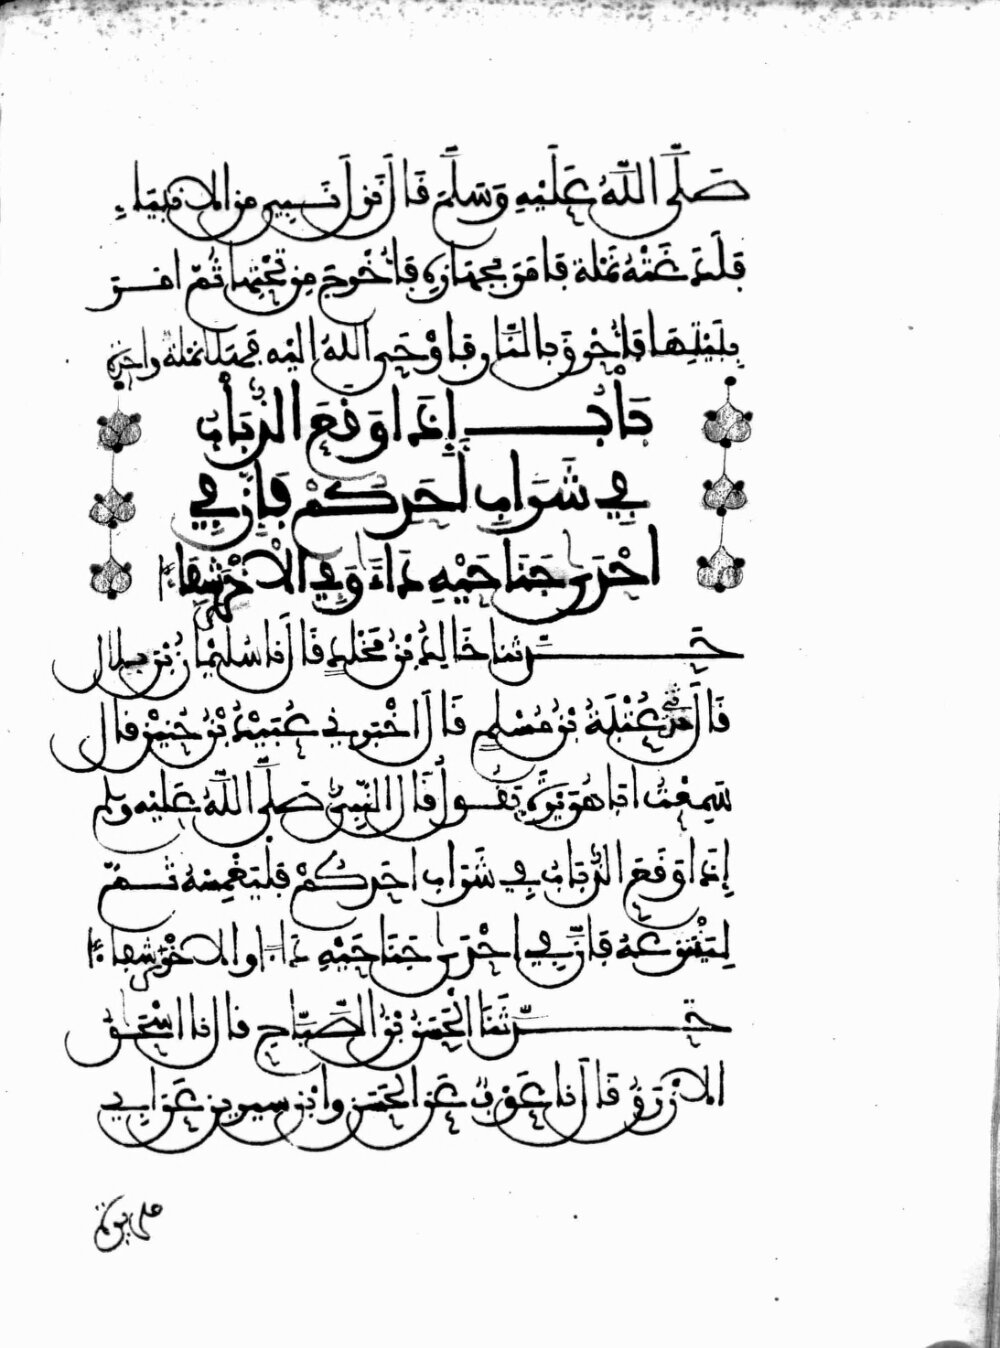 صَلَّى اللَّهُ عَلَيْهِ وَسَلَّمَ قَالَ نَزَلَ نَبِيٌّ مِنَ الَانْبِيَاءِ
فَلَدَغَتْهُ نَمْلَة فَأَمَرَ بِجَهَازِهِ فَأُخْرِجَ مِن تَحْتِهَا ثُمَّ امَرَ
بِبَيْتِهَا فَأُحْرِقَ بِالنَّارِ فَأَوْحَى اللَّهُ إِلَيْهِ فَهَلَّا نَمْلَةً وَاحِدَة
بَابُ إِذَا وَقَعَ الذُّبَابُ
فِي شَرَابِ أَحَدِكُمْ فَإِنَّ فِي
احْدَى جَنَاحَيْهِ دَاءً وَفِي الْأُخْرَى شِفَاء
حَدَّثَنَا خَالِدُ بْنُ مَخْلَدٍ قَالَ نَا سُلَيْمَانُ بْنُ بِلَال
قَالَ حَدَّثَنِي عُتْبَةُ بْنُ مُسْلِمٍ قَالَ اخْبَرَنِي عُبَيْدُ بْنُ حُنَيْنٍ قَالَ
سَمِعْتُ ابَا هُرَيْرَةَ يَقُولُ قَالَ النَّبِيُّ صَلَّى اللَّهُ عَلَيْهِ وسلم
إِذَا وَقَعَ الذُّبَابُ فِي شَرَابِ احَدِكُمْ فَلْيَغْمِسْهُ ثُمَّ
لِيَنْزِعْهُ فَإِنَّ فِي احْدَى جَنَاحَيْهِ دَاء وَالاخْرَى شِفَاء
حَدَّثَنَا الْحَسَنُ بْنُ الصَّبَّاحِ قَالَ نَا اسْحَقُ
الَازْرَقُ قَالَ نَا عَوْفٌ عَنِ الْحَسَنِ وَابْنِ سِيرِينَ عَنْ ابِي